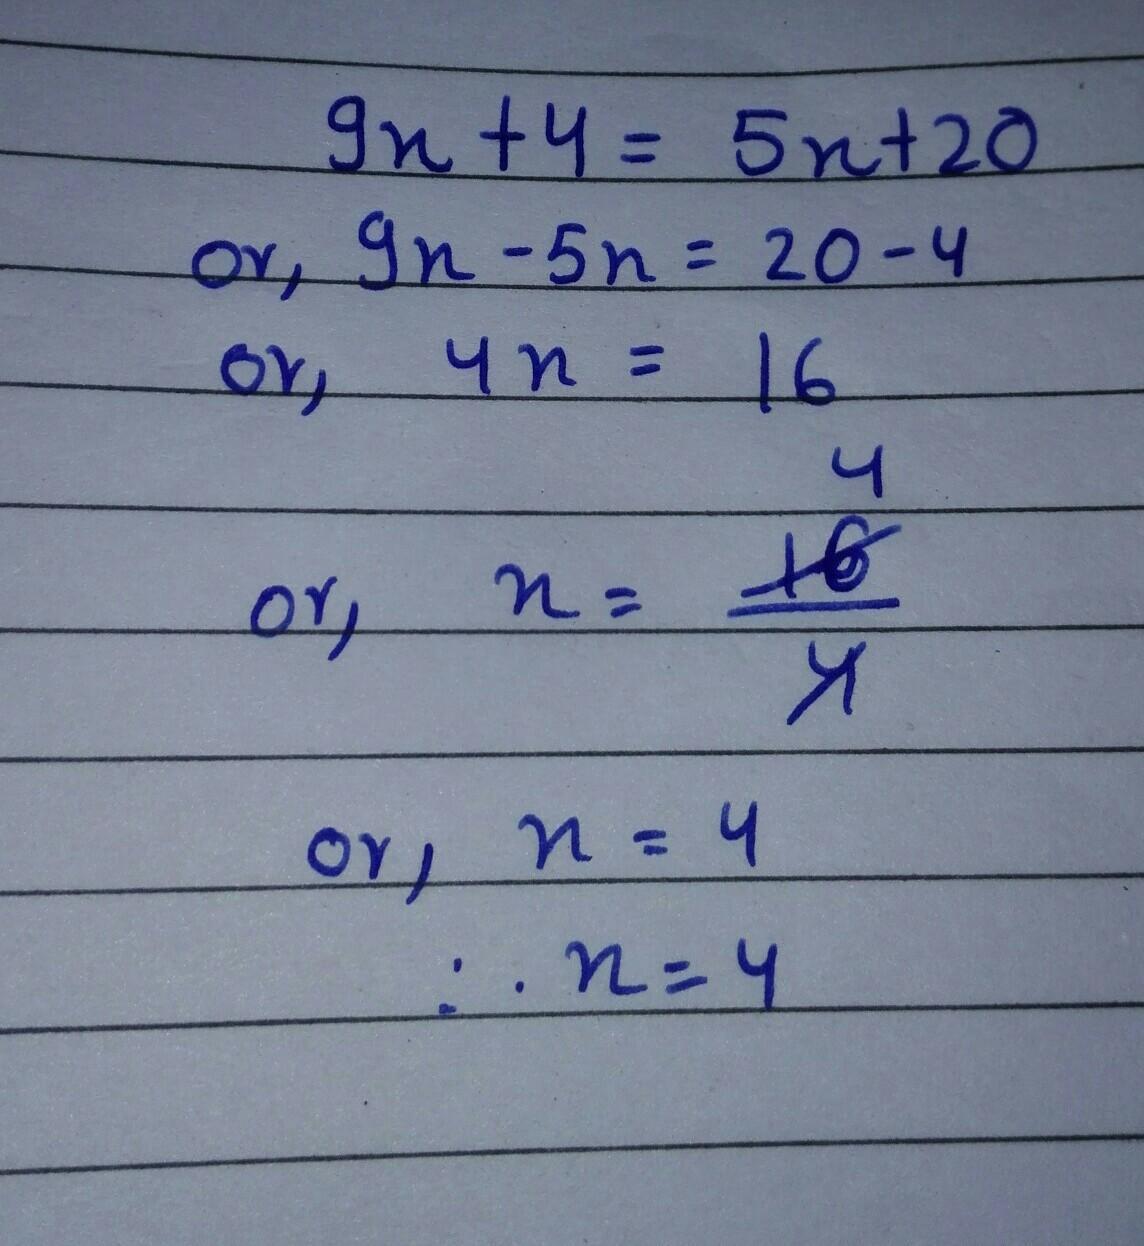 9x + 4 = 5x + 20
or, 9x - 5x = 20 - 4
or, 4x = 16
4
or, x = 16/4
or, x = 4
∴ x = 4